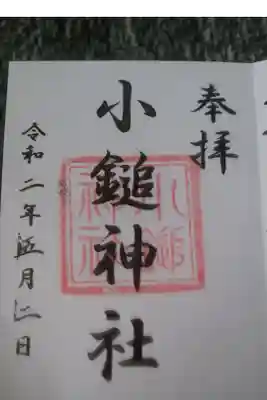 奉拝
小鎚神社
令和二年五月二日